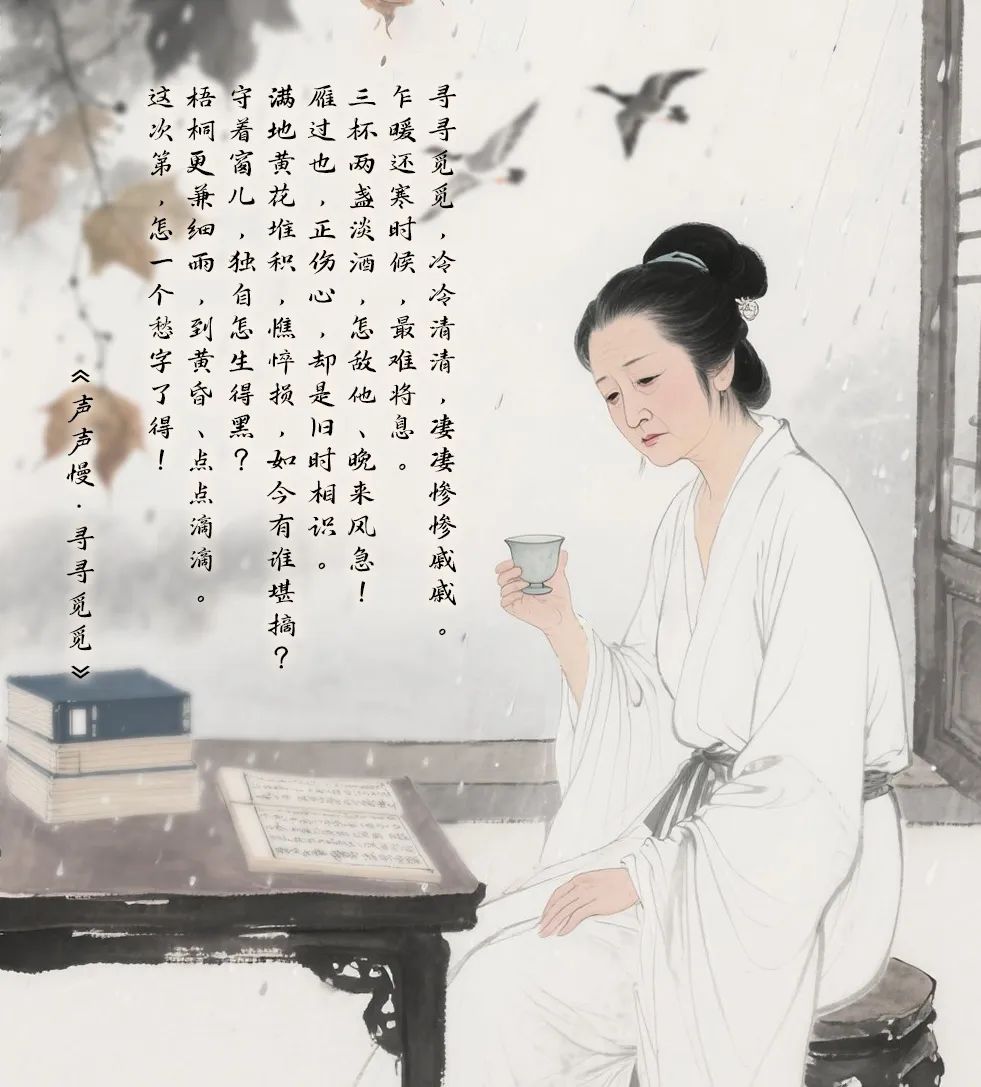 寻寻觅觅，冷冷清清，凄凄惨惨戚戚。
乍暖还寒时候，最难将息。
三杯两盏淡酒，怎敌他、晚来风急！
雁过也，正伤心，却是旧时相识。
满地黄花堆积，憔悴损，如今有谁堪摘？
守着窗儿，独自怎生得黑？
梧桐更兼细雨，到黄昏、点点滴滴。
这次第，怎一个愁字了得！
《声声慢·寻寻觅觅》